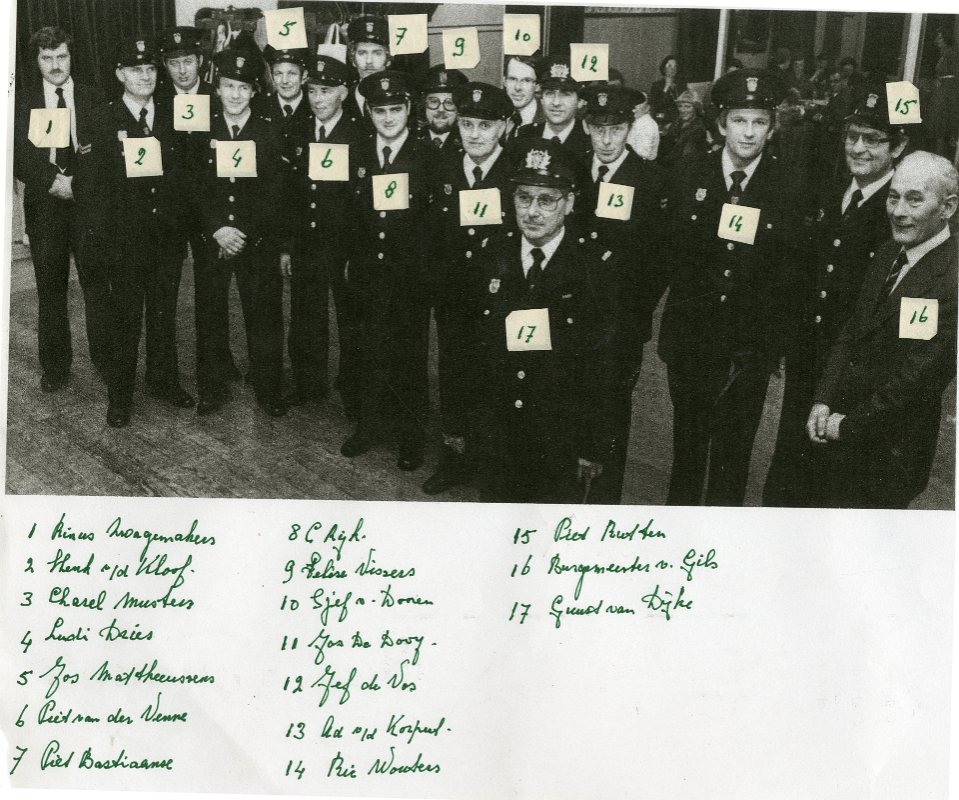 5
7
10
9
12
15
1
3
2
4
6
8
11
13
14
16
17
1 Rinus Wagemakers
2 Henk v/d Kloof.
3 Charel Musters
4 Ludi Dries
5 Jos Mattheeussens
6 Piet van der Venne
7 Piet Bastiaanse
8 C Rijk.
9 Vissers
10 Sjef v. Dooren
11 Jos De Dooy.
12 Jef de Vos
13 Ad v/d Korput.
14 Ric Wouters
15 Piet
16 Burgemeester v. Gils
17 Guust van Dijke